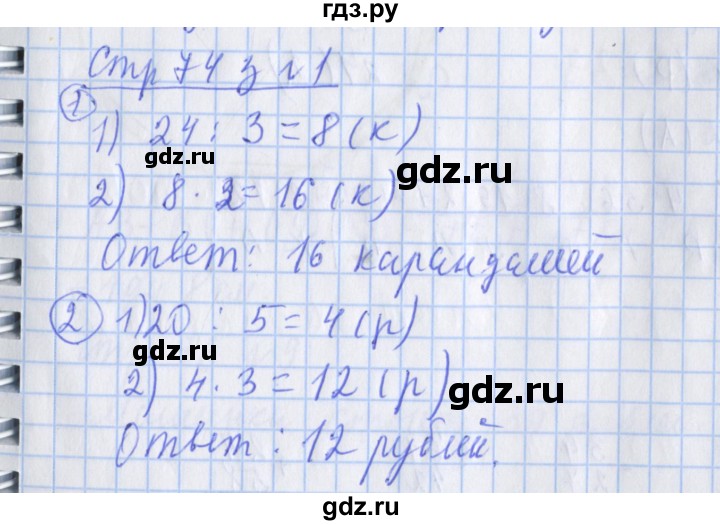 гдз.ру
Стр 74 з №1
① 1) 24 : 3 = 8 (к)
gdz.ru
gdz.ru
2) 8 · 2 = 16 (к)
Ответ: 16 карандашей
② 1) 20 : 5 = 4 (р)
gdz.ru
2) 4 · 3 = 12 (р)
gdz.ru
Ответ : 12 рублей.
gdz.ru